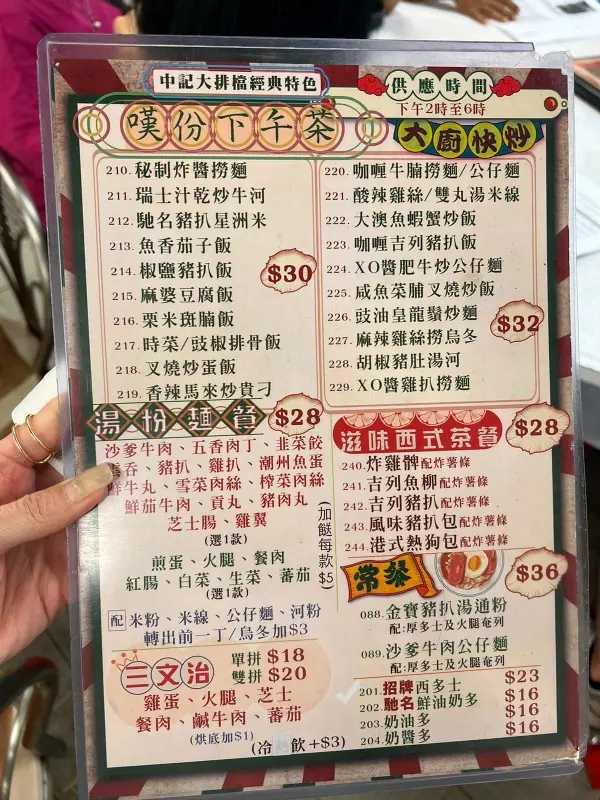 中記大排檔經典特色
供應時間
下午2時至6時
嘆份下午茶
大廚快炒
210. 秘制炸醬撈麵
211. 瑞士汁乾炒牛河
212. 馳名豬扒星洲米
213. 魚香茄子飯
214. 椒鹽豬扒飯
215. 麻婆豆腐飯
216. 栗米斑腩飯
217. 時菜/豉椒排骨飯
218. 叉燒炒蛋飯
219. 香辣馬來炒貴刁
$30
220. 咖喱牛腩撈麵/公仔麵
221. 酸辣雞絲/雙丸湯米線
222. 大澳魚蝦蟹炒飯
223. 咖喱吉列豬扒飯
224. XO醬肥牛炒公仔麵
225. 咸魚菜脯叉燒炒飯
226. 豉油皇龍鬚炒麵
227. 麻辣雞絲撈烏冬
228. 胡椒豬肚湯河
229. XO醬雞扒撈麵
$32
湯粉麵餐 $28
沙爹牛肉、五香肉丁、韭菜餃
香、豬扒、雞扒、潮州魚蛋
鮮牛丸、雪菜肉絲、榨菜肉絲
鮮茄牛肉、貢丸、豬肉丸
芝士腸、雞翼
(選1款)
煎蛋、火腿、餐肉
紅腸、白菜、生菜、蕃茄
(選1款)
(加餸每款$5)
配 米粉、米線、公仔麵、河粉
轉出前一丁/烏冬加$3
三文治
單拼 $18
雙拼 $20
雞蛋、火腿、芝士
餐肉、鹹牛肉、蕃茄
(烘底加$1)
(冷飲+$3)
滋味西式茶餐 $28
240. 炸雞髀配炸薯條
241. 吉列魚柳配炸薯條
242. 吉列豬扒配炸薯條
243. 風味豬扒包配炸薯條
244. 港式熱狗包配炸薯條
常餐 $36
088. 金寶豬扒湯通粉
配:厚多士及火腿奄列
089. 沙爹牛肉公仔麵
配:厚多士及火腿奄列
201. 招牌西多士 $23
202. 馳名鮮油奶多 $16
203. 奶油多 $16
204. 奶醬多 $16